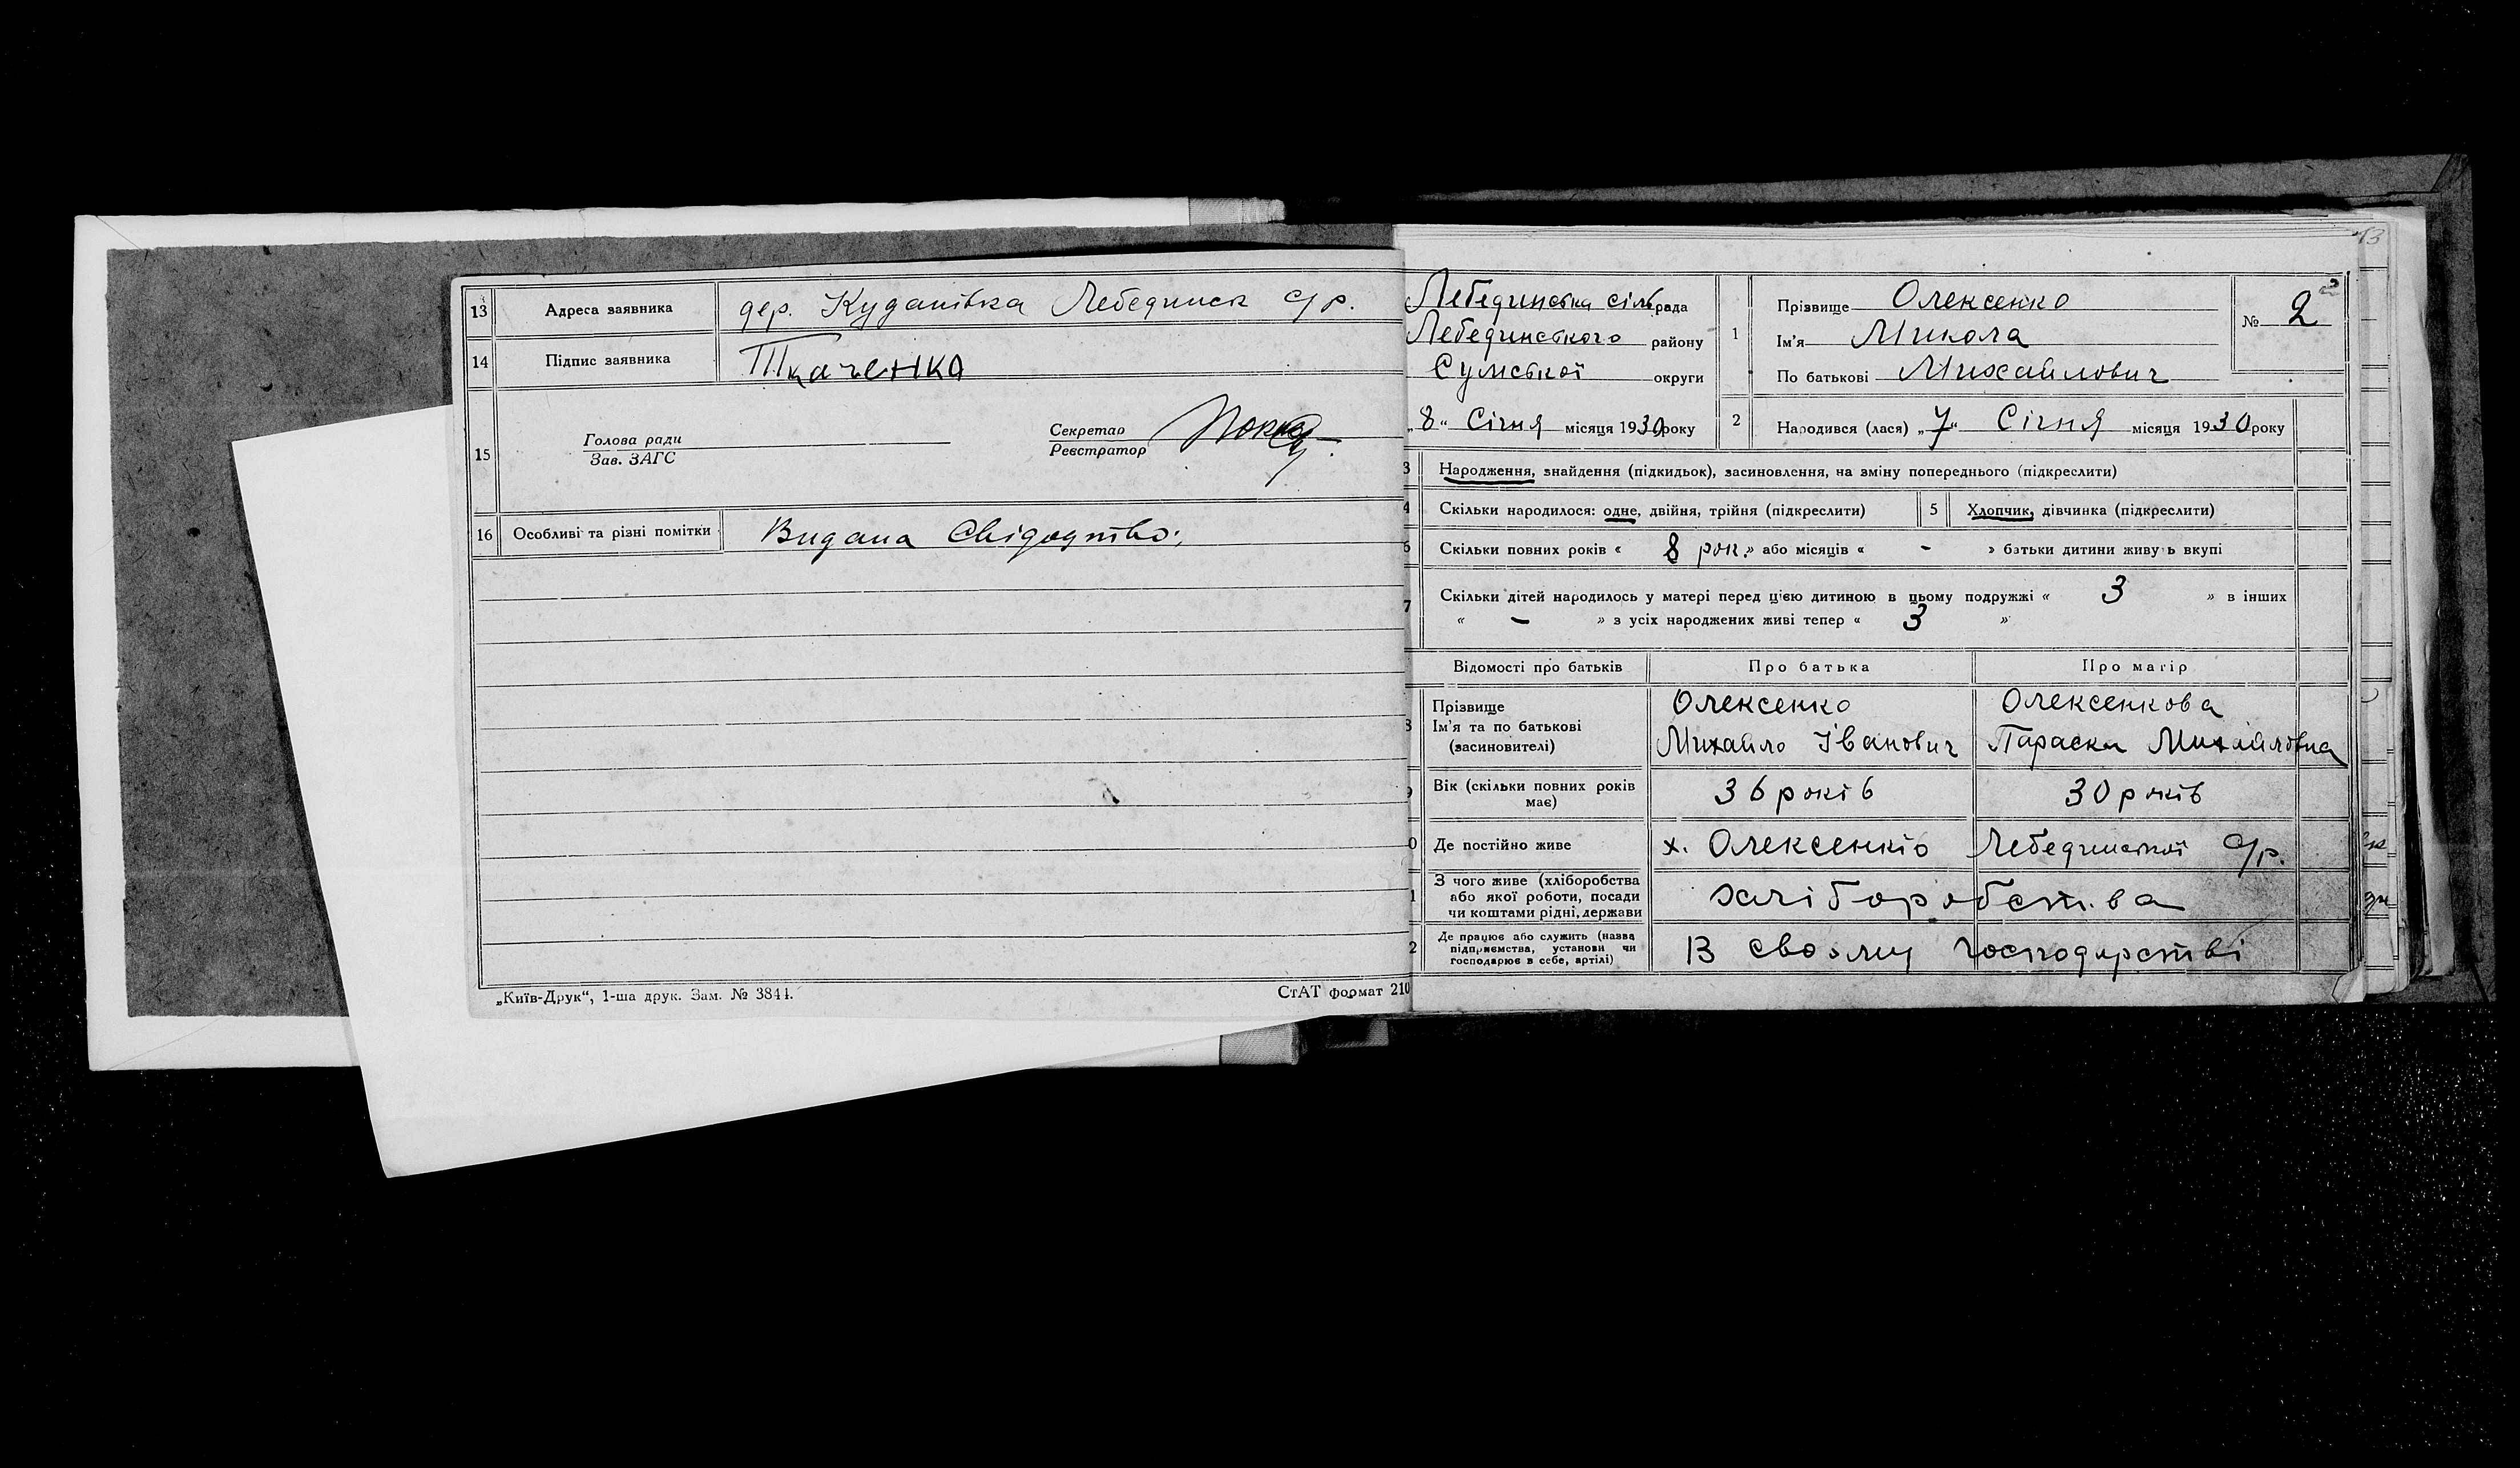 13 Адреса заявника дер. Куданівка Лебединск с/р.
14 Підпис заявника Ткаченко
15 Голова ради Зав. ЗАГС Секретар Реєстратор
16 Особливі та різні помітки Видана Свідодтво.
„Київ-Друк“, 1-ша друк. Зам. № 3844. СтАТ формат 210
13
Лебединська сільрада
Лебединського району
Сумської округи
„8“ Січня місяця 1930 року
1 Прізвище Олексенко
Ім'я Микола
По батькові Михайлович
№ 2
2 Народився (лася) „7“ Січня місяця 1930 року
3 Народження, знайдення (підкидьок), засиновлення, на зміну попереднього (підкреслити)
4 Скільки народилося: одне, двійня, трійня (підкреслити) 5 Хлопчик, дівчинка (підкреслити)
6 Скільки повних років « 8 рок. » або місяців « - » батьки дитини живу ь вкупі
7 Скільки дітей народилось у матері перед цією дитиною в цьому подружжі « 3 » в інших
« - » з усіх народжених живі тепер « 3 »
Відомості про батьків Про батька Про матір
8 Прізвище Олексенко Олексенкова
Ім'я та по батькові (засиновителі) Михайло Іванович Параска Михайловна
9 Вік (скільки повних років має) 36 років 30 років
0 Де постійно живе х. Олексенків Лебединської с/р.
1 З чого живе (хліборобства або якої роботи, посади чи коштами рідні, держави хліборобства
2 Де працює або служить (назва підприємства, установи чи господарює в себе, артілі) В своэму господарстві